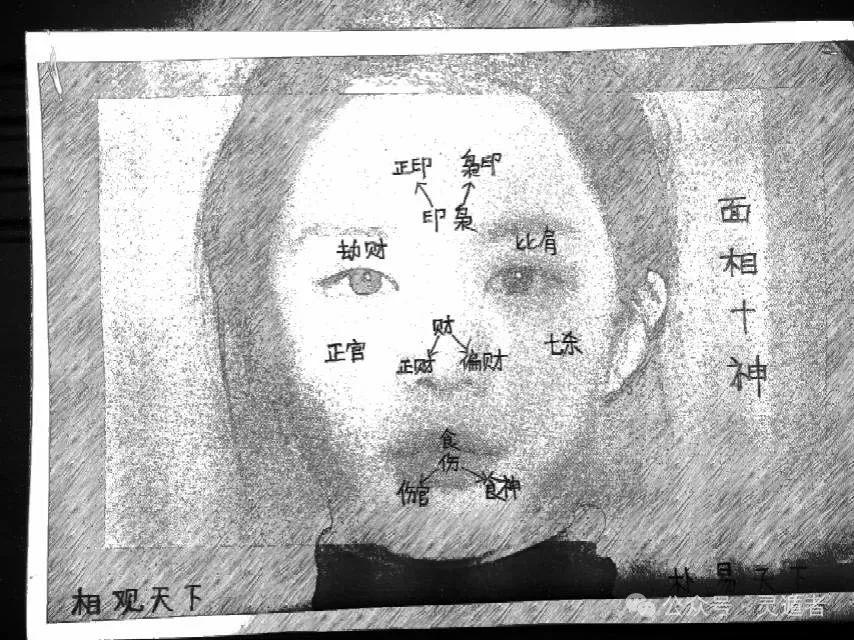 正印 枭印
印枭
劫财 比肩
财
正官 正财 偏财 七杀
食
伤
伤官 食神
面相十神
相观天下
朴易天下
公众号 灵遁者